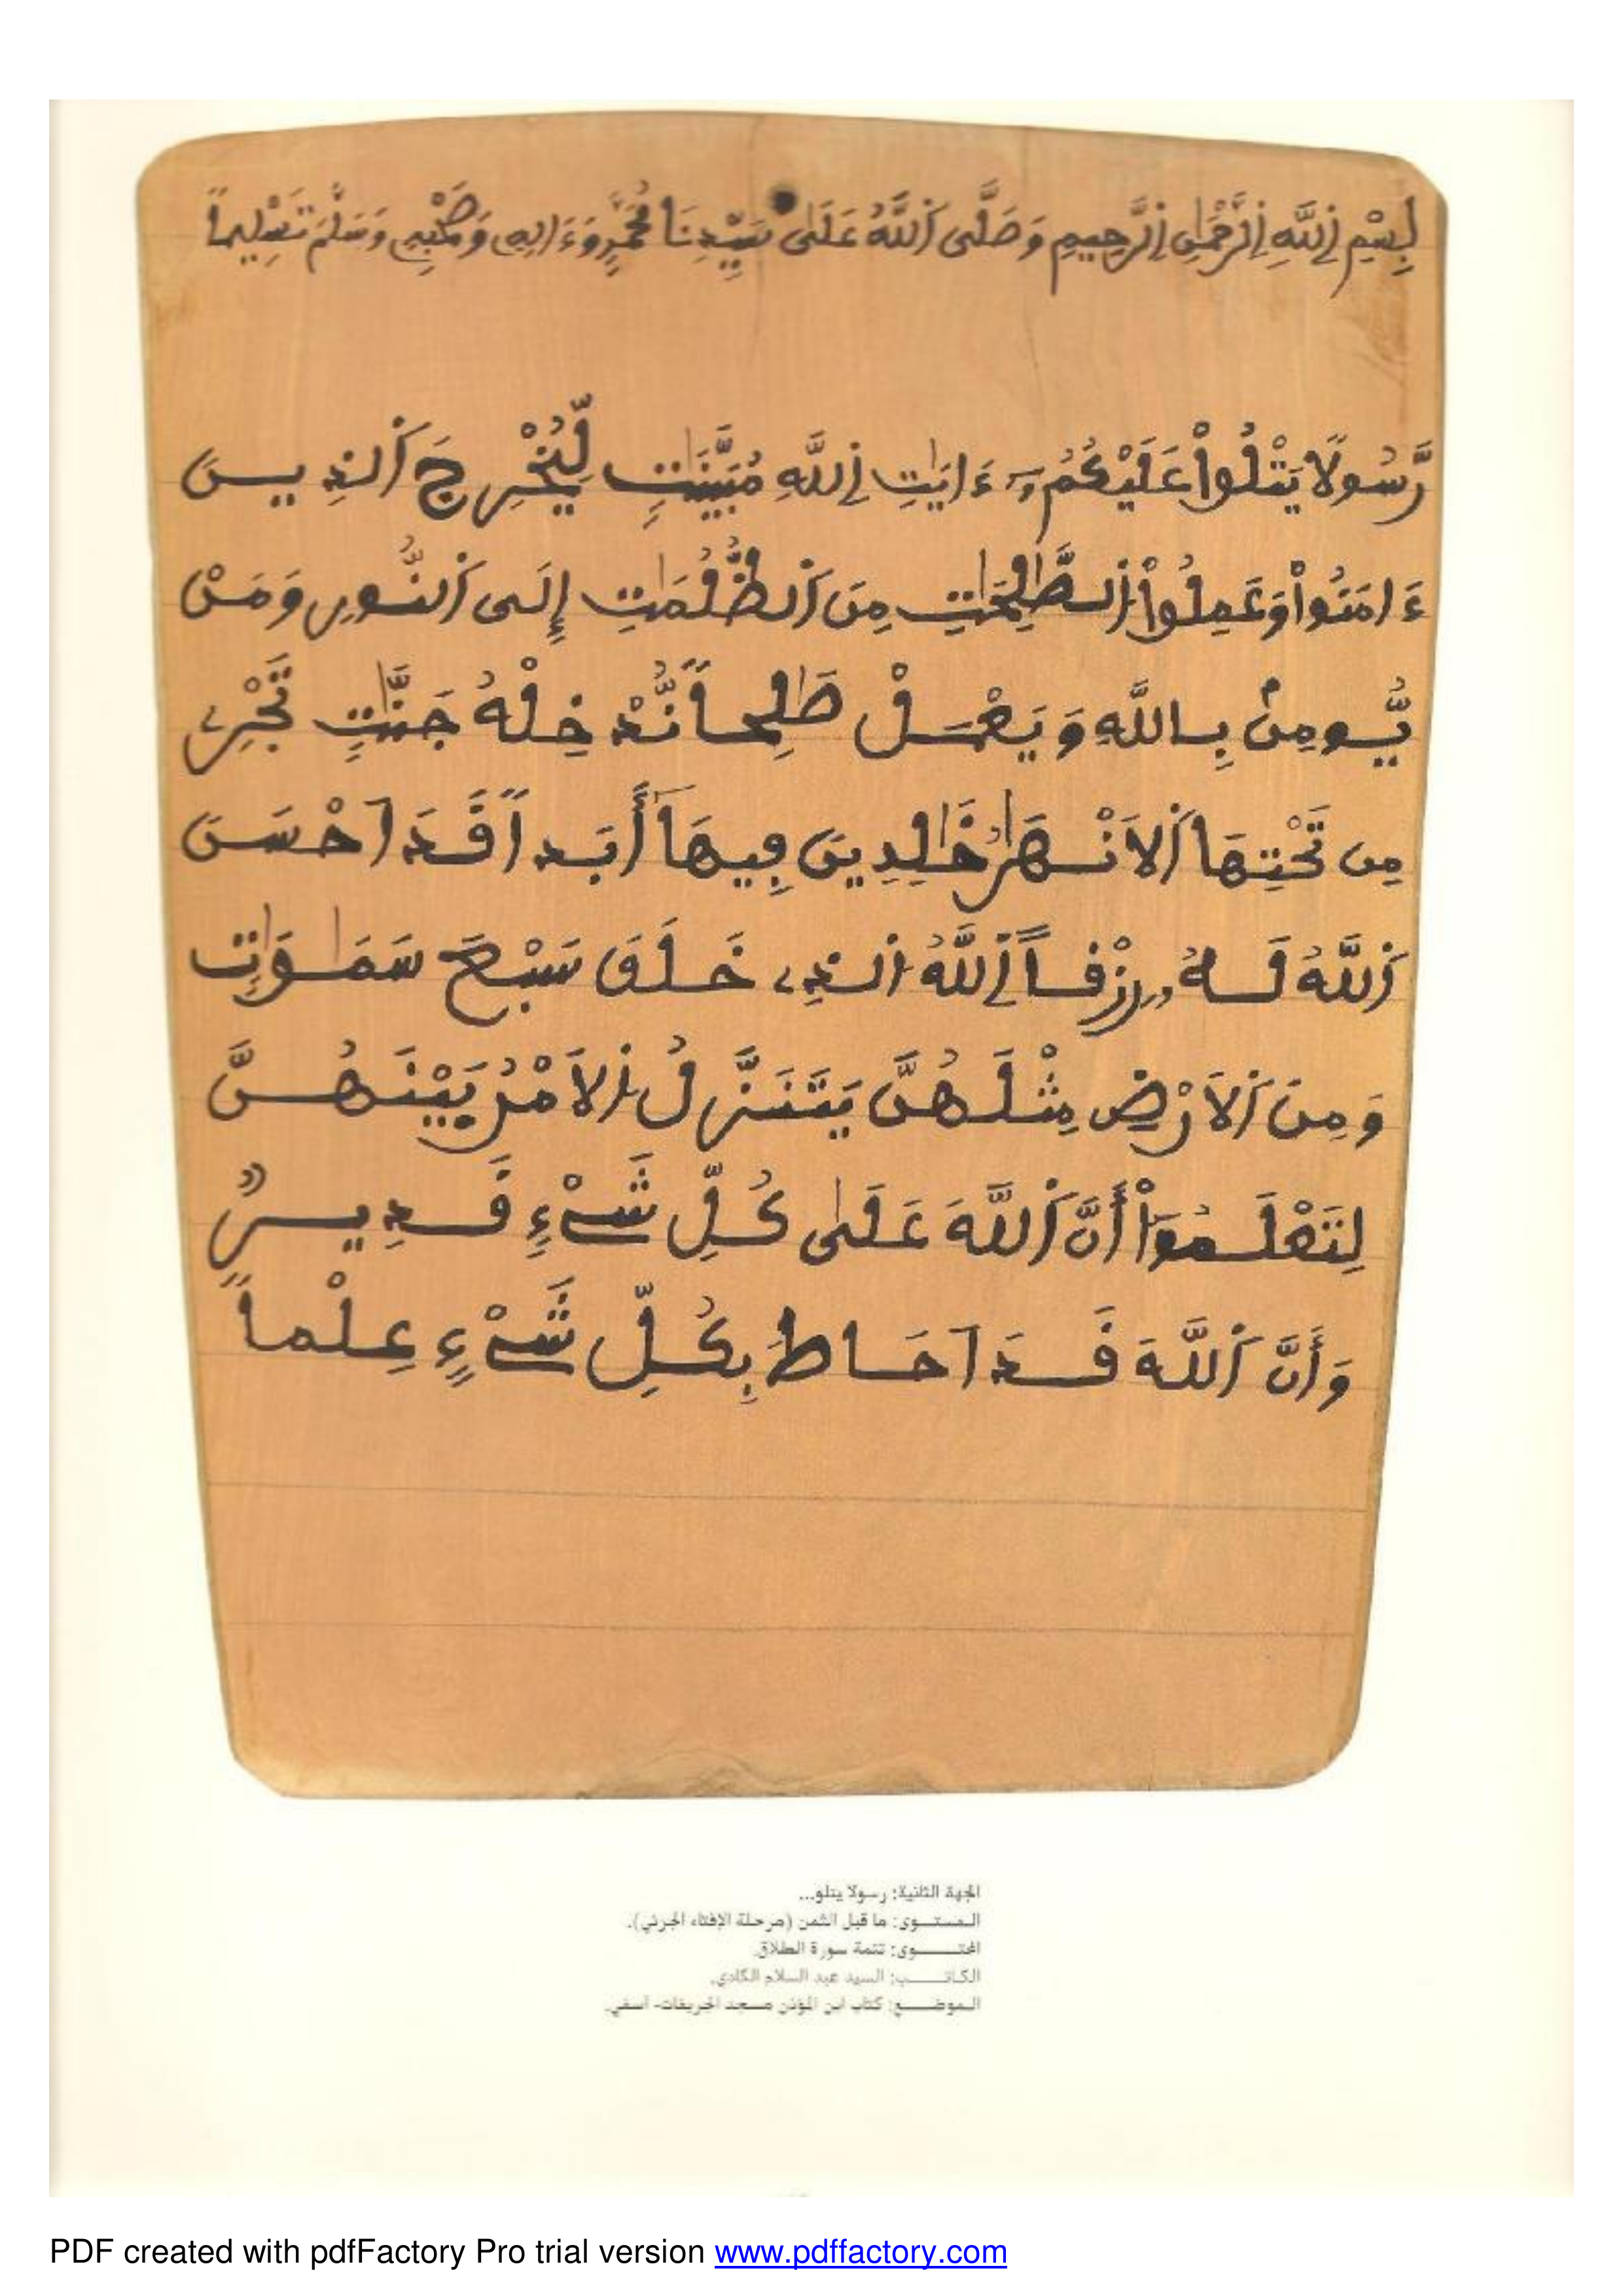 بِسْمِ اِ۬للَّهِ اِ۬لرَّحْمَٰنِ اِ۬لرَّحِيمِ وَصَلَّى اَ۬للَّهُ عَلَىٰ سَيِّدِنَا مُحَمَّدٍ وَءَالِهِ وَصَحْبِهِ وَسَلَّمَ تَسْلِيماً
رَّسُولًا يَتْلُواْ عَلَيْكُمُۥٓ ءَايَٰتِ اِ۬للَّهِ مُبَيَّنَٰتٍ لِّيُخْرِجَ اَ۬لذِينَ
ءَامَنُواْ وَعَمِلُواْ اُ۬لصَّٰلِحَٰتِ مِنَ اَ۬لظُّلُمَٰتِ إِلَى اَ۬لنُّورِ وَمَنْ
يُّومِنۢ بِاللَّهِ وَيَعْمَلْ صَٰلِحاً نُّدْخِلْهُ جَنَّٰتٍ تَجْرِے
مِن تَحْتِهَا اَ۬لَانْهَٰرُ خَٰلِدِينَ فِيهَآ أَبَداً قَدَ اَحْسَنَ
اَ۬للَّهُ لَهُۥ رِزْقاً اَ۬للَّهُ اُ۬لذِے خَلَقَ سَبْعَ سَمَٰوَٰتٍ
وَمِنَ اَ۬لَارْضِ مِثْلَهُنَّ يَتَنَزَّلُ اُ۬لَامْرُ بَيْنَهُنَّ
لِتَعْلَمُوٓاْ أَنَّ اَ۬للَّهَ عَلَىٰ كُلِّ شَےْءٍ قَدِيرٌ
وَأَنَّ اَ۬للَّهَ قَدَ اَحَاطَ بِكُلِّ شَےْءٍ عِلْماً
الجهة الثانية: رسولا يتلو...
المستـــوى: ما قبل الثمن (مرحلة الإفتاء الجزئي).
المحتـــــوى: تتمة سورة الطلاق.
الكاتـــــب: السيد عبد السلام الگادي.
الموضـــــع: كتاب ابن المؤذن مسجد الخريفات- آسفي.
PDF created with pdfFactory Pro trial version www.pdffactory.com